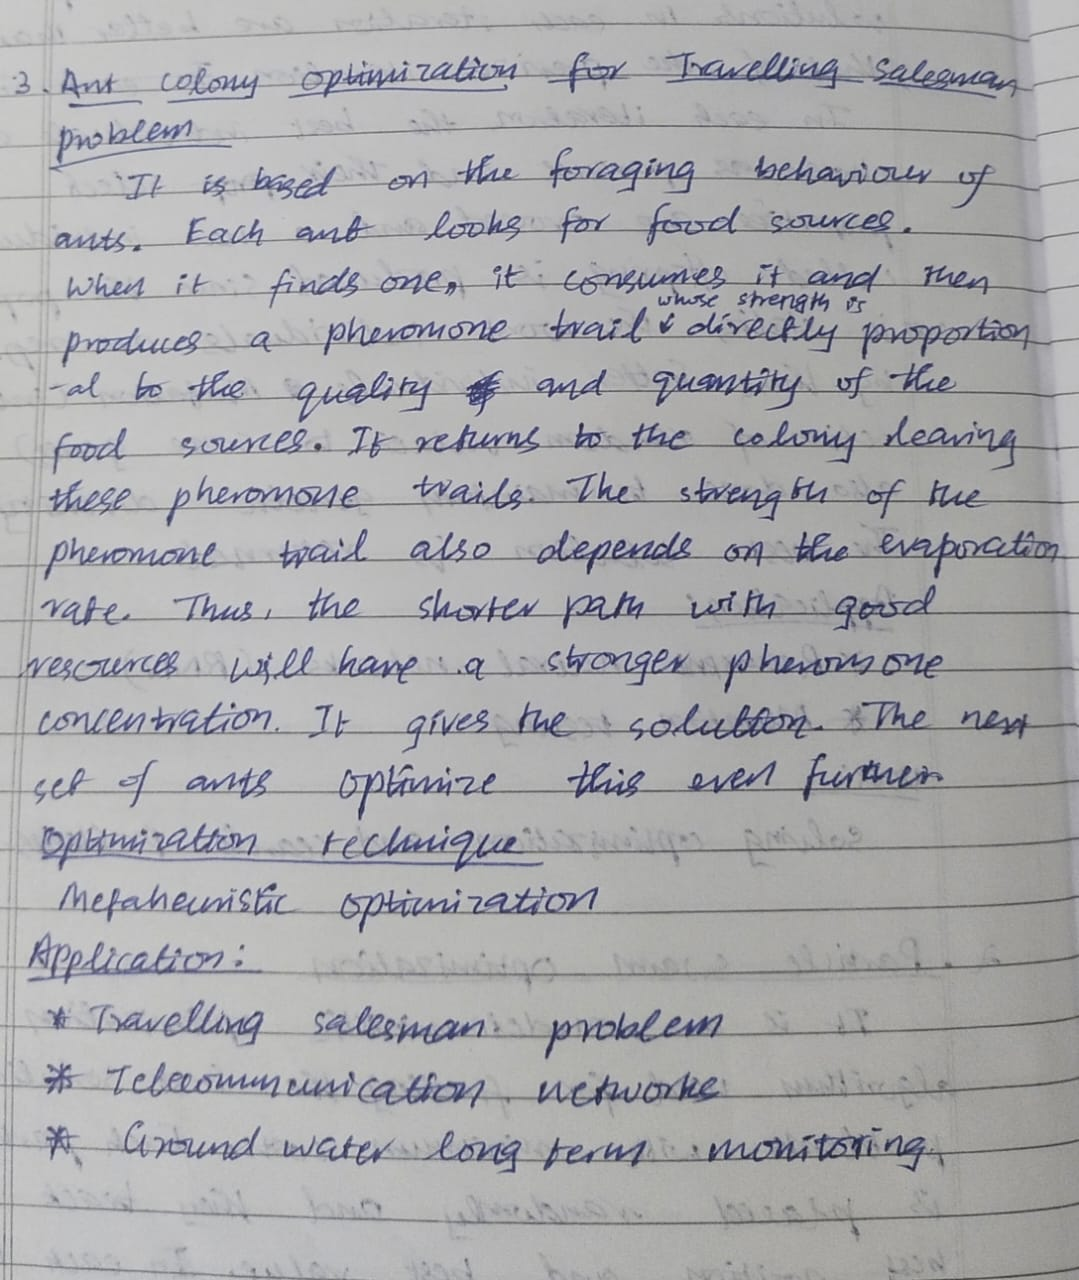 3. Ant colony optimization for Travelling Salesman
problem
It is based on the foraging behaviour of
ants. Each ant looks for food sources.
When it finds one, it consumes it and then
whose strength is
produces a pheromone trail ↓ directly proportion
-al to the quality and quantity of the
food sources. It returns to the colony leaving
these pheromone trails. The strength of the
pheromone trail also depends on the evaporation
rate. Thus, the shorter path with good
resources will have a stronger pheromone
concentration. It gives the solution. The next
set of ants optimize this even further
Optimization technique
Metaheuristic optimization
Application:
* Travelling salesman problem
* Telecommunication networks
* Ground water long term monitoring.